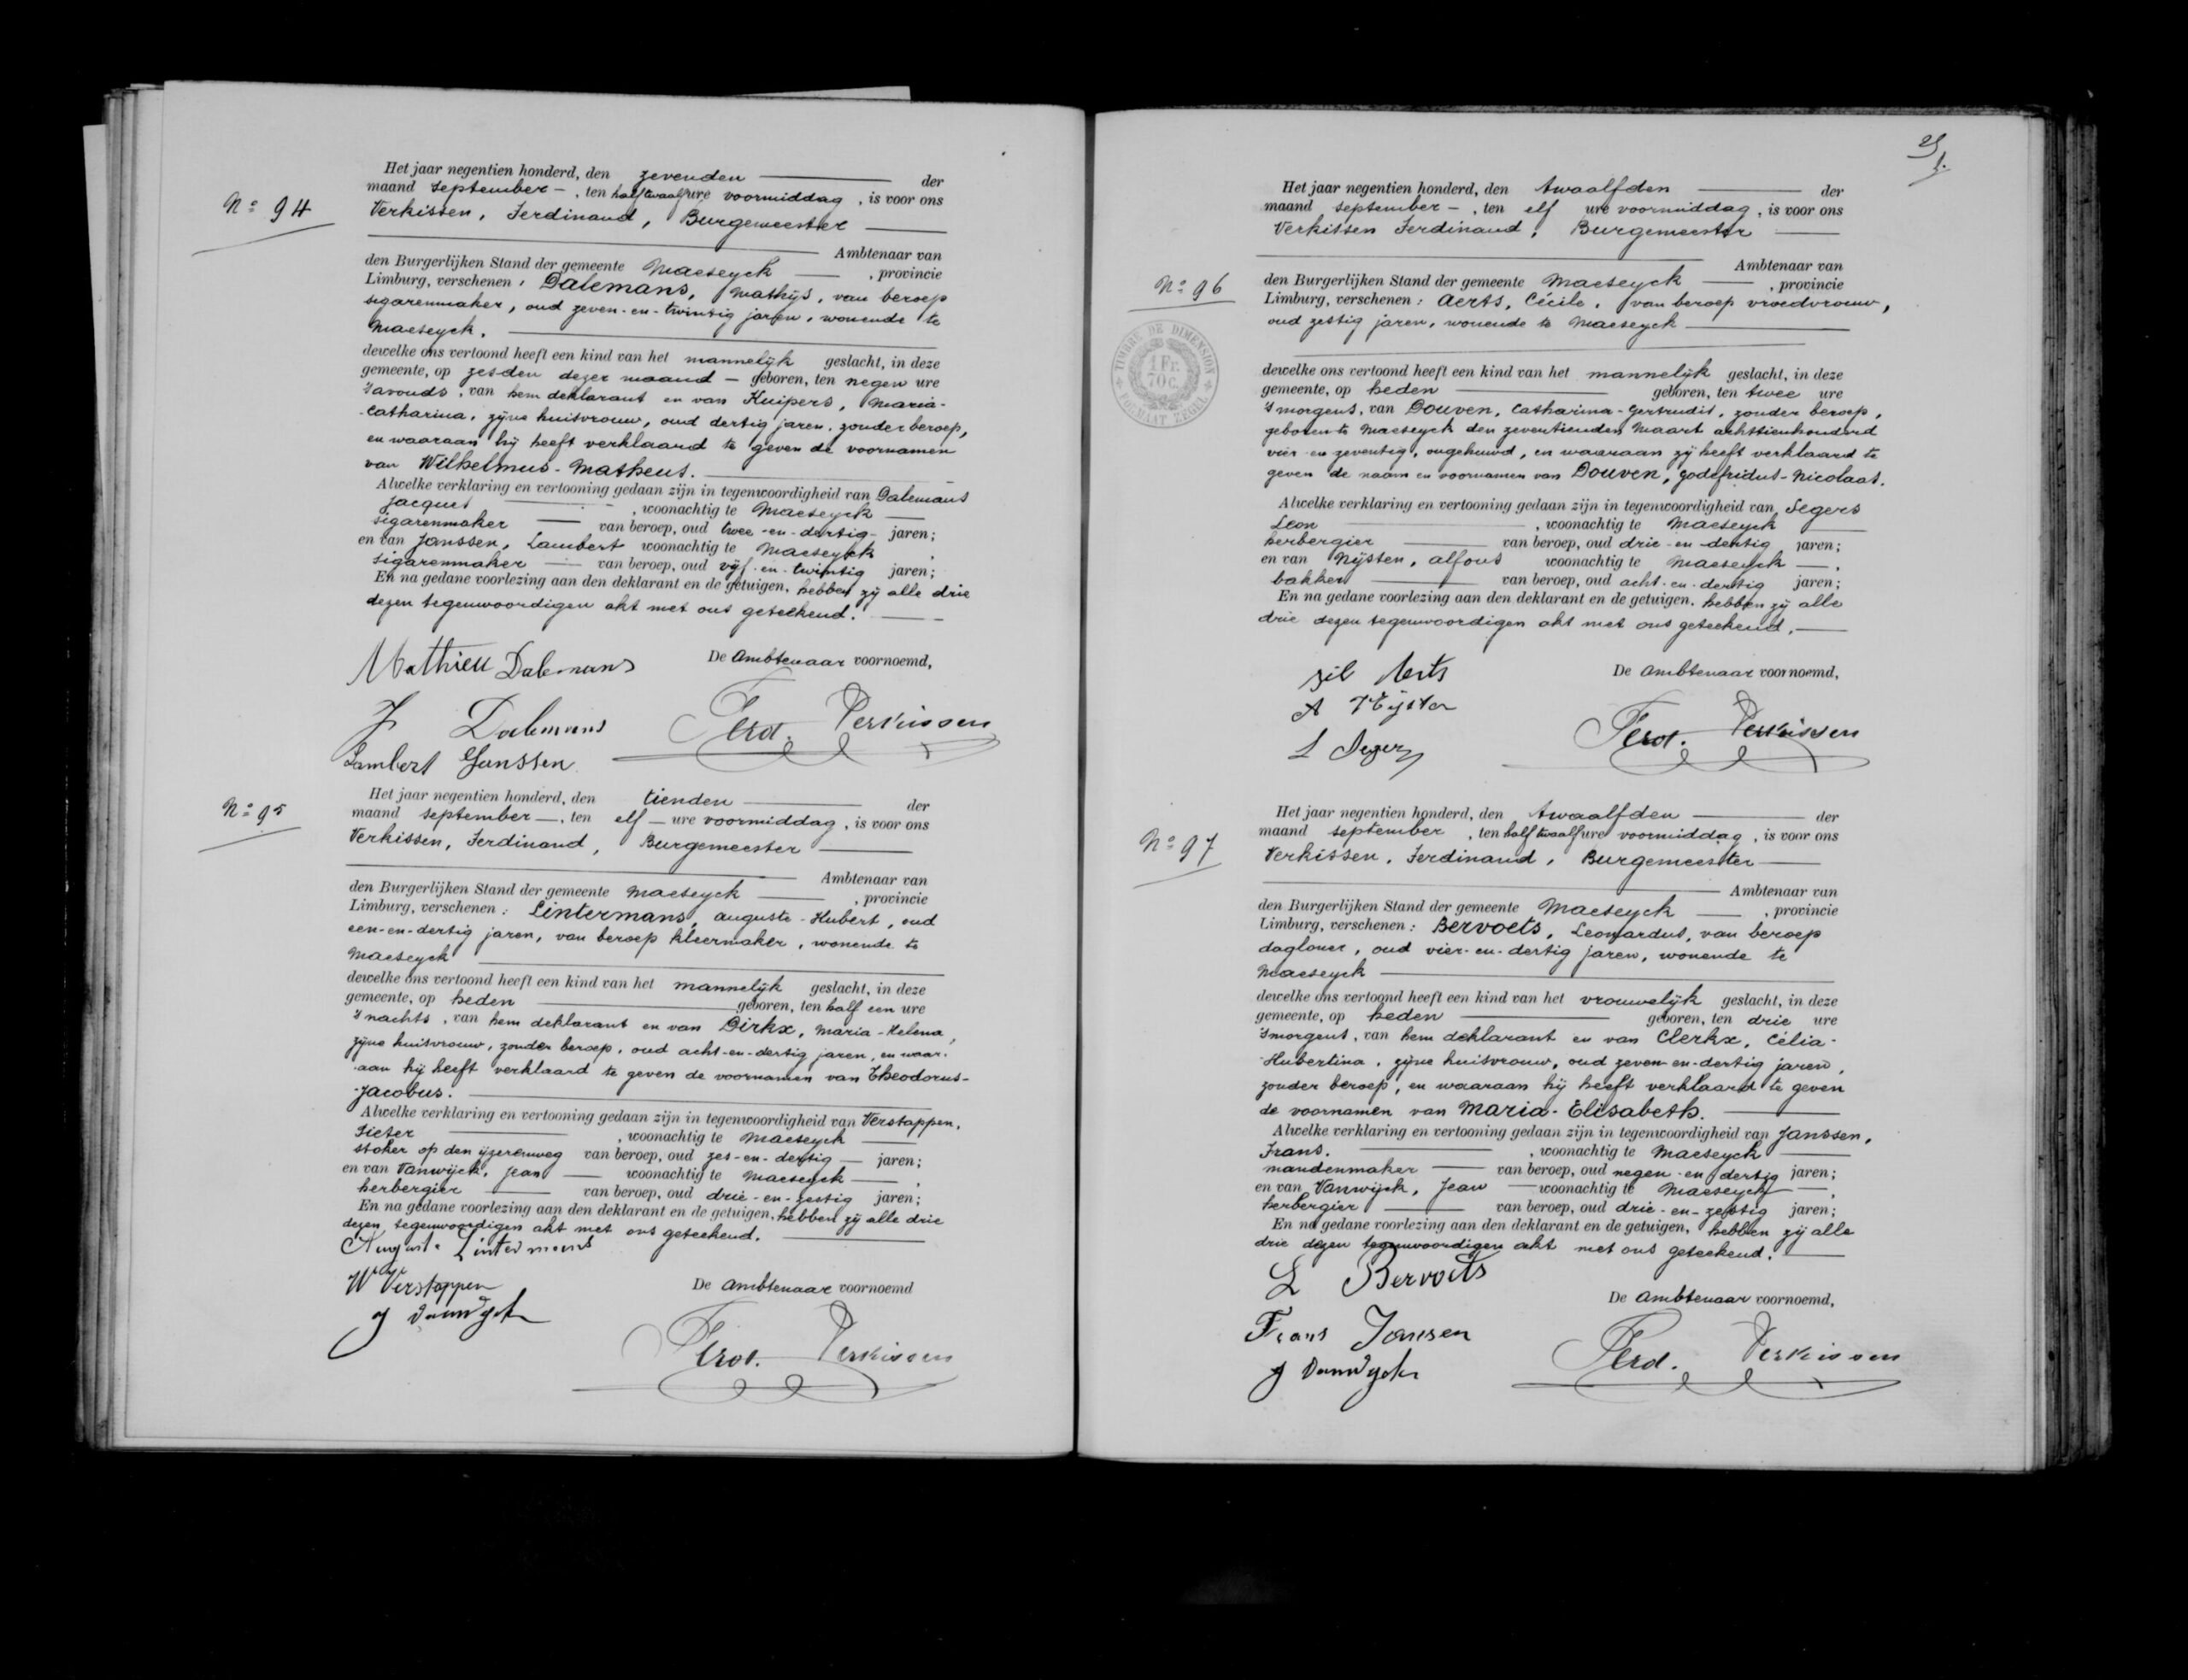 Nº 94
Het jaar negentien honderd, den zevenden der
maand September, ten half twaalf ure voormiddag, is voor ons
Verkissen, Ferdinand, Burgemeester
Ambtenaar van
den Burgerlijken Stand der gemeente Maeseyck, provincie
Limburg, verschenen: Dalemans, Mathijs, van beroep
sigarenmaker, oud zeven-en-twintig jaren, wonende te
Maeseyck.
dewelke ons vertoond heeft een kind van het mannelijk geslacht, in deze
gemeente, op zesden dezer maand geboren, ten negen ure
'savonds, van hem deklarant en van Kuipers, Maria-
-Catharina, zijne huisvrouw, oud dertig jaren, zonder beroep,
en waaraan hij heeft verklaard te geven de voornamen
van Wilhelmus-Matheus.
Alwelke verklaring en vertooning gedaan zijn in tegenwoordigheid van Dalemans
Jacques, woonachtig te Maeseyck
sigarenmaker van beroep, oud twee-en-dertig jaren;
en van Janssen, Lambert woonachtig te Maeseyck,
sigarenmaker van beroep, oud vijf-en-twintig jaren;
En na gedane voorlezing aan den deklarant en de getuigen, hebben zij alle drie
dezen tegenwoordigen akt met ons geteekend.
De Ambtenaar voornoemd,
Mathieu Dalemans
J Dalemans
Lambert Janssen
Ferd. Verkissen
Nº 95
Het jaar negentien honderd, den tienden der
maand september, ten elf ure voormiddag, is voor ons
Verkissen, Ferdinand, Burgemeester
Ambtenaar van
den Burgerlijken Stand der gemeente Maeseyck, provincie
Limburg, verschenen: Lintermans, Auguste-Hubert, oud
een-en-dertig jaren, van beroep kleermaker, wonende te
Maeseyck
dewelke ons vertoond heeft een kind van het mannelijk geslacht, in deze
gemeente, op heden geboren, ten half een ure
'snachts, van hem deklarant en van Dirkx, Maria-Helena,
zijne huisvrouw, zonder beroep, oud acht-en-dertig jaren, en waar-
-aan hij heeft verklaard te geven de voornamen van Theodorus-
-Jacobus.
Alwelke verklaring en vertooning gedaan zijn in tegenwoordigheid van Verstappen,
Pieter, woonachtig te Maeseyck
stoker op den ijzerenweg van beroep, oud zes-en-dertig jaren;
en van Vanwijck, Jean woonachtig te Maeseyck,
herbergier van beroep, oud drie-en-zestig jaren;
En na gedane voorlezing aan den deklarant en de getuigen, hebben zij alle drie
dezen tegenwoordigen akt met ons geteekend.
Auguste Lintermans
Verstappen
De Ambtenaar voornoemd
J VanWyck
Ferd. Verkissen
Het jaar negentien honderd, den twaalfden der
maand september, ten elf ure voormiddag, is voor ons
Verkissen Ferdinand, Burgemeester
Ambtenaar van
Nº 96
den Burgerlijken Stand der gemeente Maeseyck, provincie
Limburg, verschenen: Aerts, Cécile, van beroep vroedvrouw,
oud zestig jaren, wonende te Maeseyck
TIMBRE DE DIMENSION
1 Fr.
70 C.
FORMAAT ZEGEL
dewelke ons vertoond heeft een kind van het mannelijk geslacht, in deze
gemeente, op heden geboren, ten twee ure
'smorgens, van Douven, Catharina-Gertrudis, zonder beroep,
geboren te Maeseyck den zeventienden Maart achttienhonderd
vier-en-zeventig, ongehuwd, en waaraan zij heeft verklaard te
geven de naam en voornamen van Douven, Godefridus-Nicolaas.
Alwelke verklaring en vertooning gedaan zijn in tegenwoordigheid van Segers
Leon, woonachtig te Maeseyck
herbergier van beroep, oud drie-en-dertig jaren;
en van Nijsten, Alfons woonachtig te Maeseyck,
bakker van beroep, oud acht-en-dertig jaren;
En na gedane voorlezing aan den deklarant en de getuigen, hebben zij alle
drie dezen tegenwoordigen akt met ons geteekend.
De Ambtenaar voornoemd,
Aerts
A Nijsten
L Segers
Ferd. Verkissen
Nº 97
Het jaar negentien honderd, den twaalfden der
maand september, ten half twaalf ure voormiddag, is voor ons
Verkissen, Ferdinand, Burgemeester
Ambtenaar van
den Burgerlijken Stand der gemeente Maeseyck, provincie
Limburg, verschenen: Bervoets, Leonardus, van beroep
daglooner, oud vier-en-dertig jaren, wonende te
Maeseyck
dewelke ons vertoond heeft een kind van het vrouwelijk geslacht, in deze
gemeente, op heden geboren, ten drie ure
'smorgens, van hem deklarant en van Clerkx, Célia-
-Hubertina, zijne huisvrouw, oud zeven-en-dertig jaren,
zonder beroep, en waaraan hij heeft verklaard te geven
de voornamen van Maria-Elisabeth.
Alwelke verklaring en vertooning gedaan zijn in tegenwoordigheid van Janssen,
Frans, woonachtig te Maeseyck
mandenmaker van beroep, oud negen-en-dertig jaren;
en van Vanwijck, Jean woonachtig te Maeseyck,
herbergier van beroep, oud drie-en-zestig jaren;
En na gedane voorlezing aan den deklarant en de getuigen, hebben zij alle
drie dezen tegenwoordigen akt met ons geteekend.
L Bervoets
De Ambtenaar voornoemd,
Frans Jansen
J VanWyck
Ferd. Verkissen